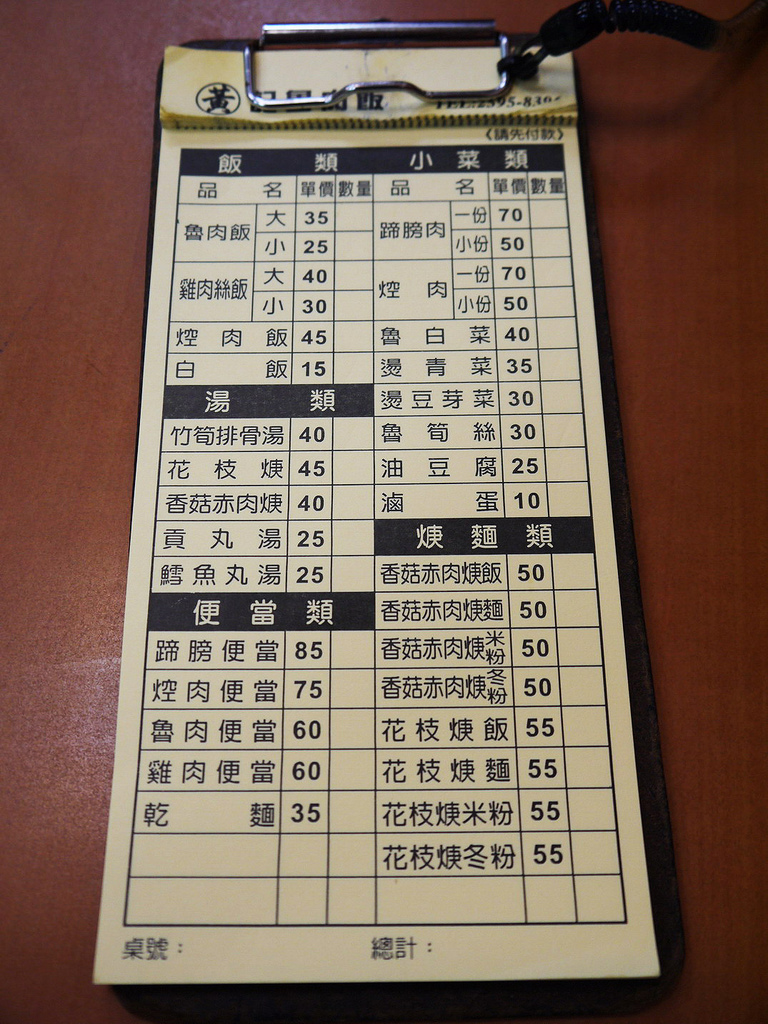 黃記魯肉飯 TEL:2595-839
《請先付款》
飯類
品名 單價 數量
魯肉飯 大 35
小 25
雞肉絲飯 大 40
小 30
焢肉飯 45
白飯 15
湯類
竹筍排骨湯 40
花枝焿 45
香菇赤肉焿 40
貢丸湯 25
鱈魚丸湯 25
便當類
蹄膀便當 85
焢肉便當 75
魯肉便當 60
雞肉便當 60
乾麵 35
小菜類
品名 單價 數量
蹄膀肉 一份 70
小份 50
焢肉 一份 70
小份 50
魯白菜 40
燙青菜 35
燙豆芽菜 30
魯筍絲 30
油豆腐 25
滷蛋 10
焿麵類
香菇赤肉焿飯 50
香菇赤肉焿麵 50
香菇赤肉焿米粉 50
香菇赤肉焿冬粉 50
花枝焿飯 55
花枝焿麵 55
花枝焿米粉 55
花枝焿冬粉 55
桌號： 總計：